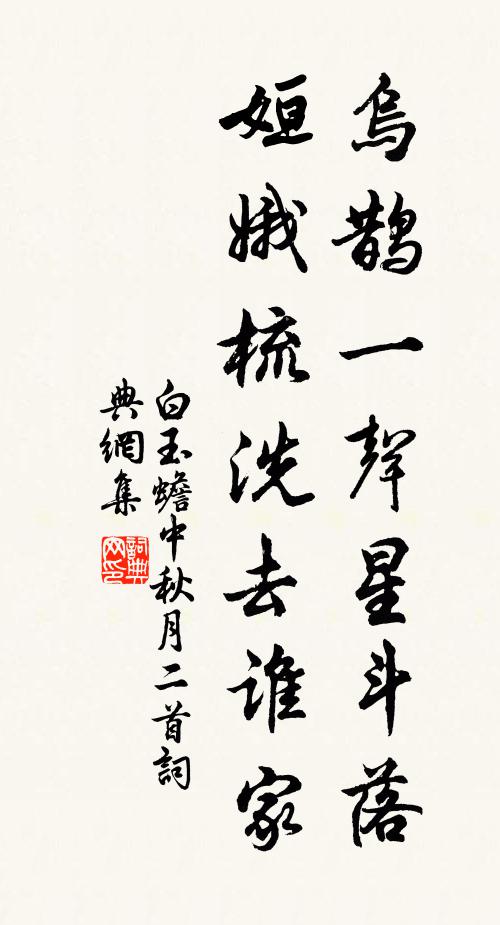 烏鵲一聲星斗落
姮娥梳洗去誰家
白玉蟾中秋月二首詞
典網集
詞典網印